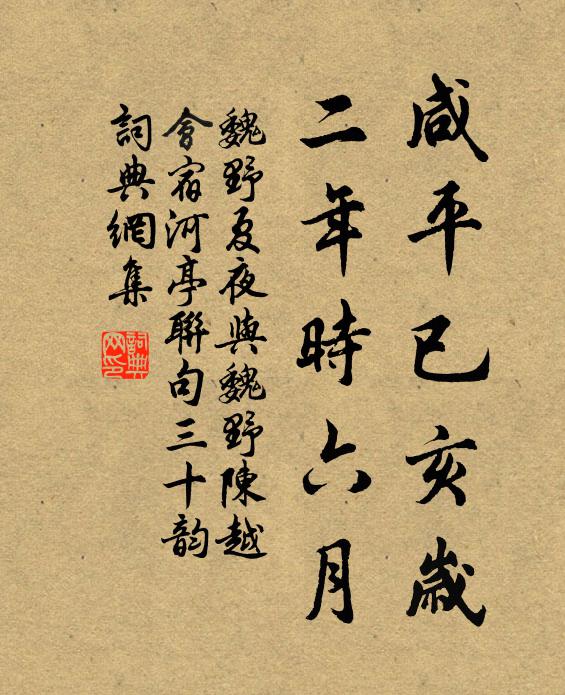 咸平已亥歲
二年時六月
魏野夏夜與魏野陳越
會宿河亭聯句三十韵
詞典網集
詞典
网印